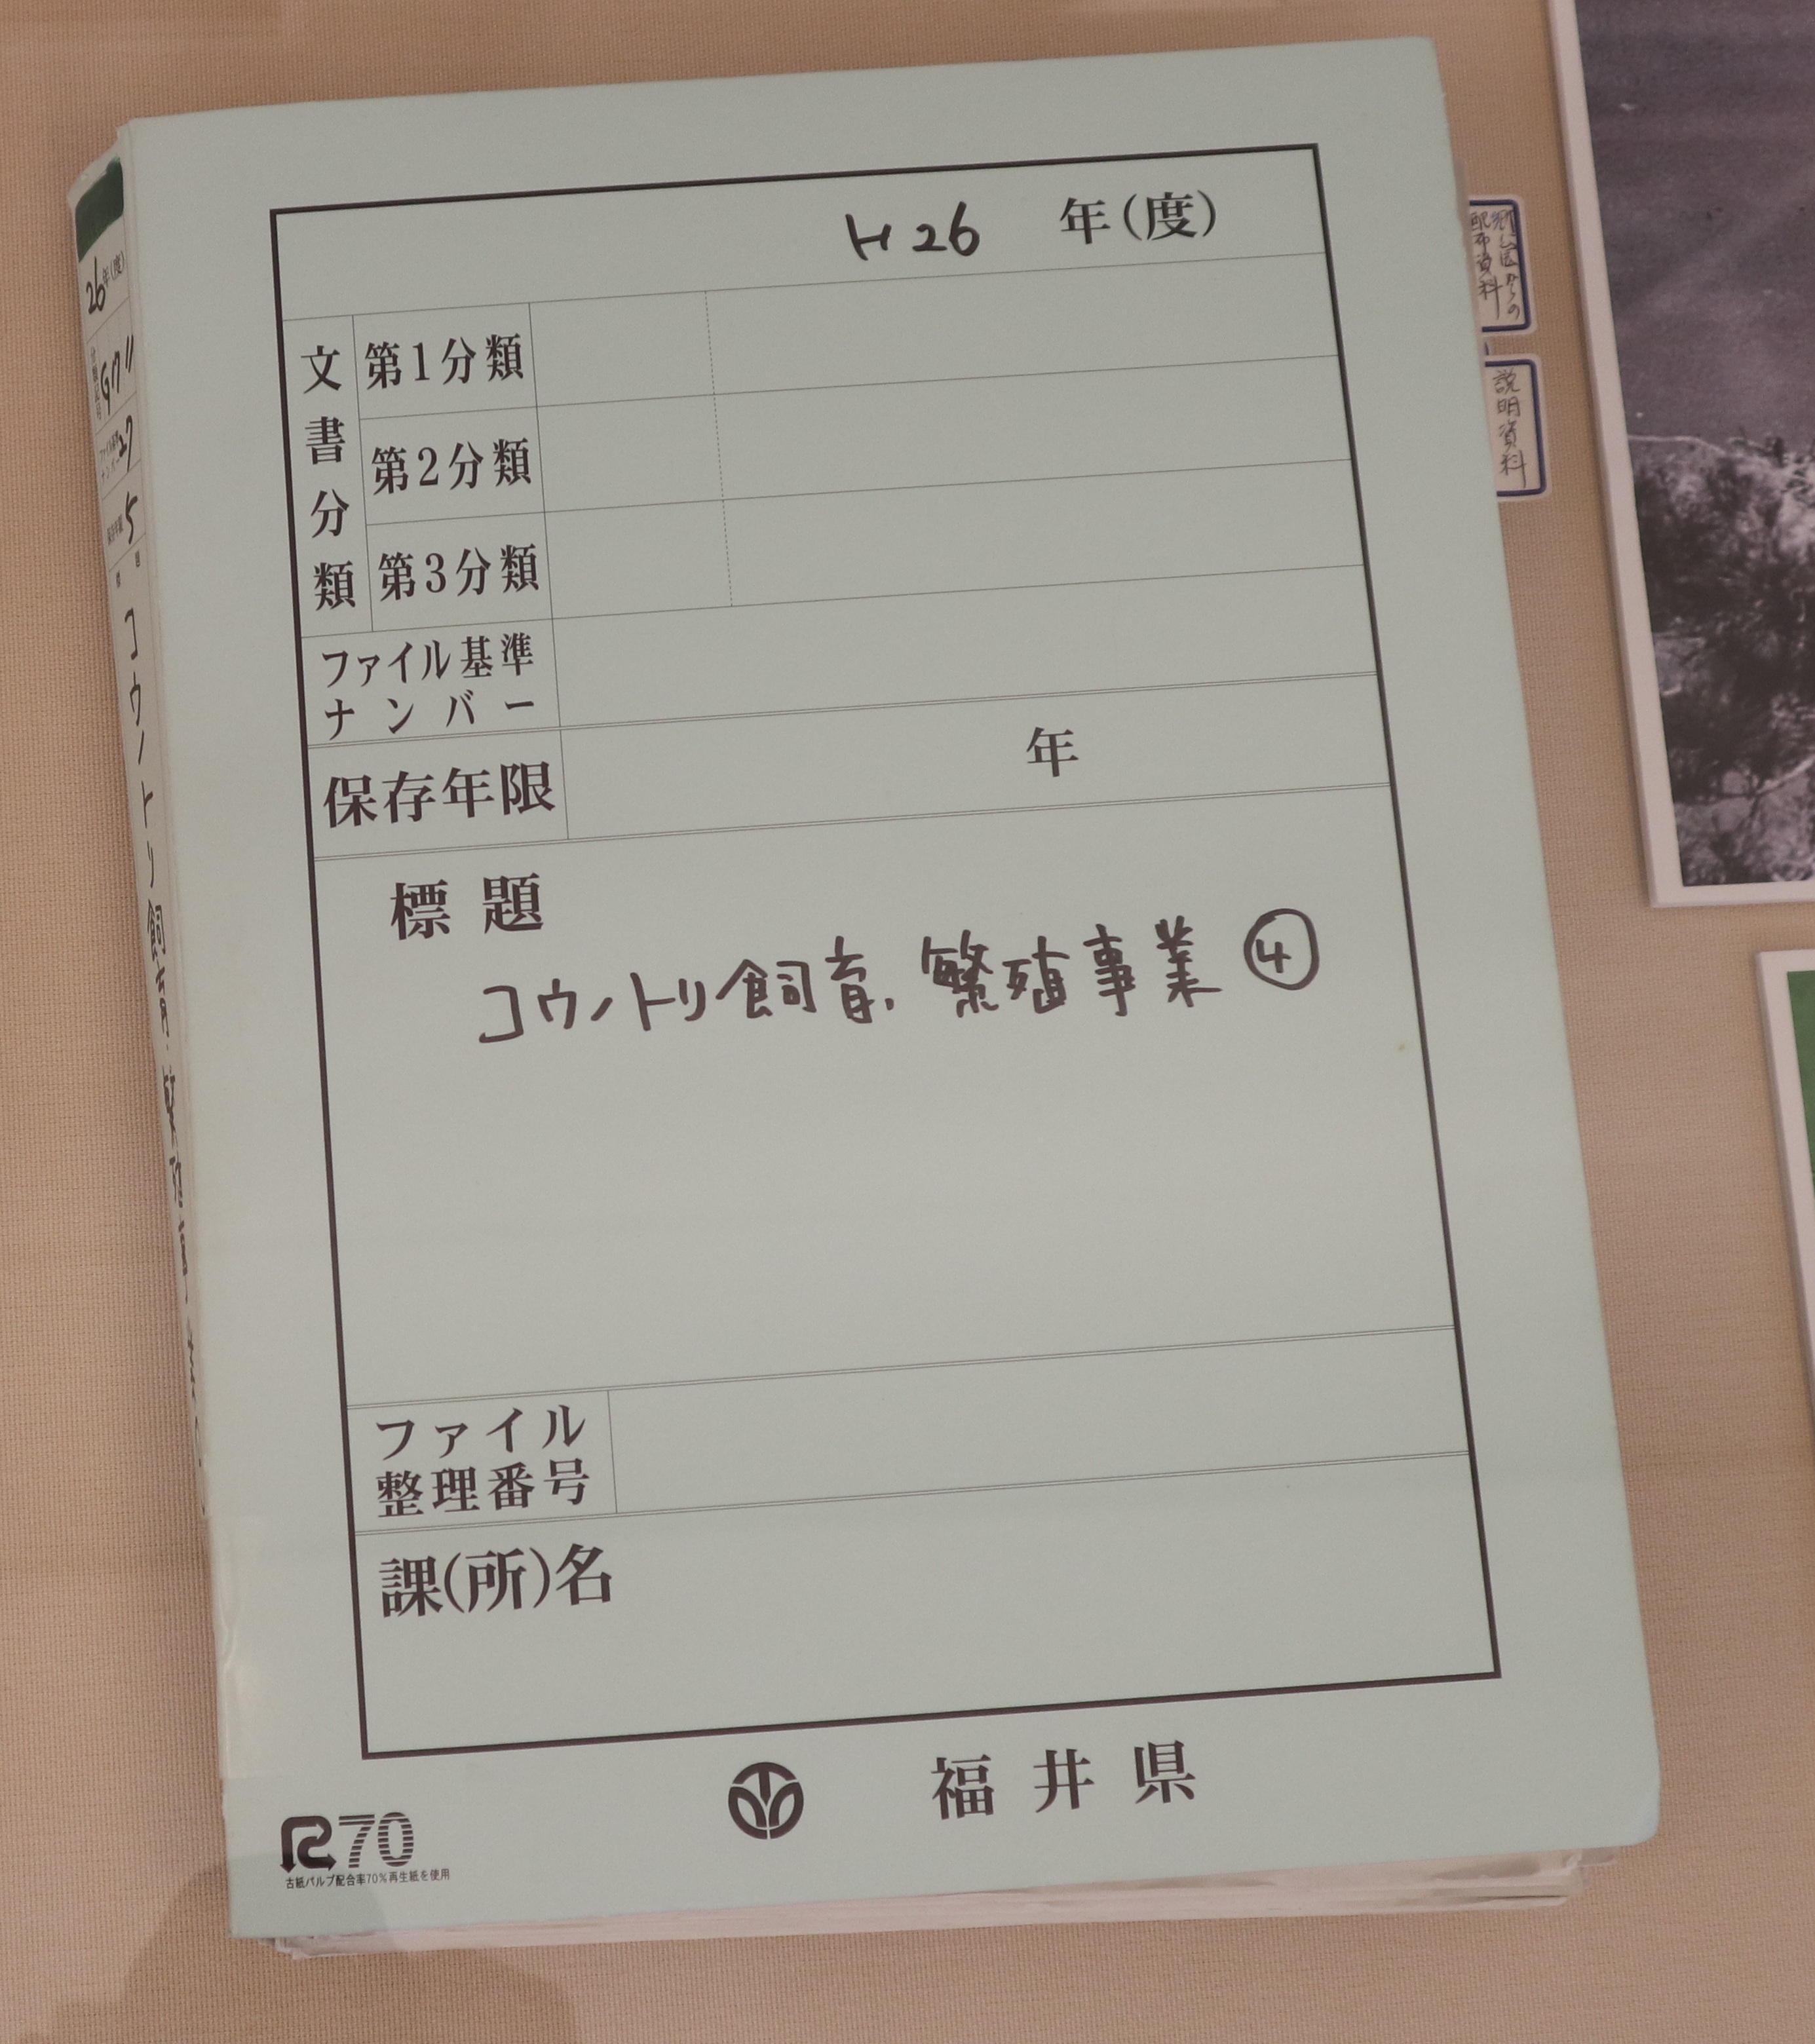 H26 年(度)
文書分類
第1分類
第2分類
第3分類
ファイル基準
ナンバー
保存年限 年
標題
コウノトリ飼育、繁殖事業 ④
ファイル
整理番号
課(所)名
福井県
R70
古紙パルプ配合率70%再生紙を使用
26年(度)
5
コウノトリ飼育・繁殖事業
配布資料
説明資料